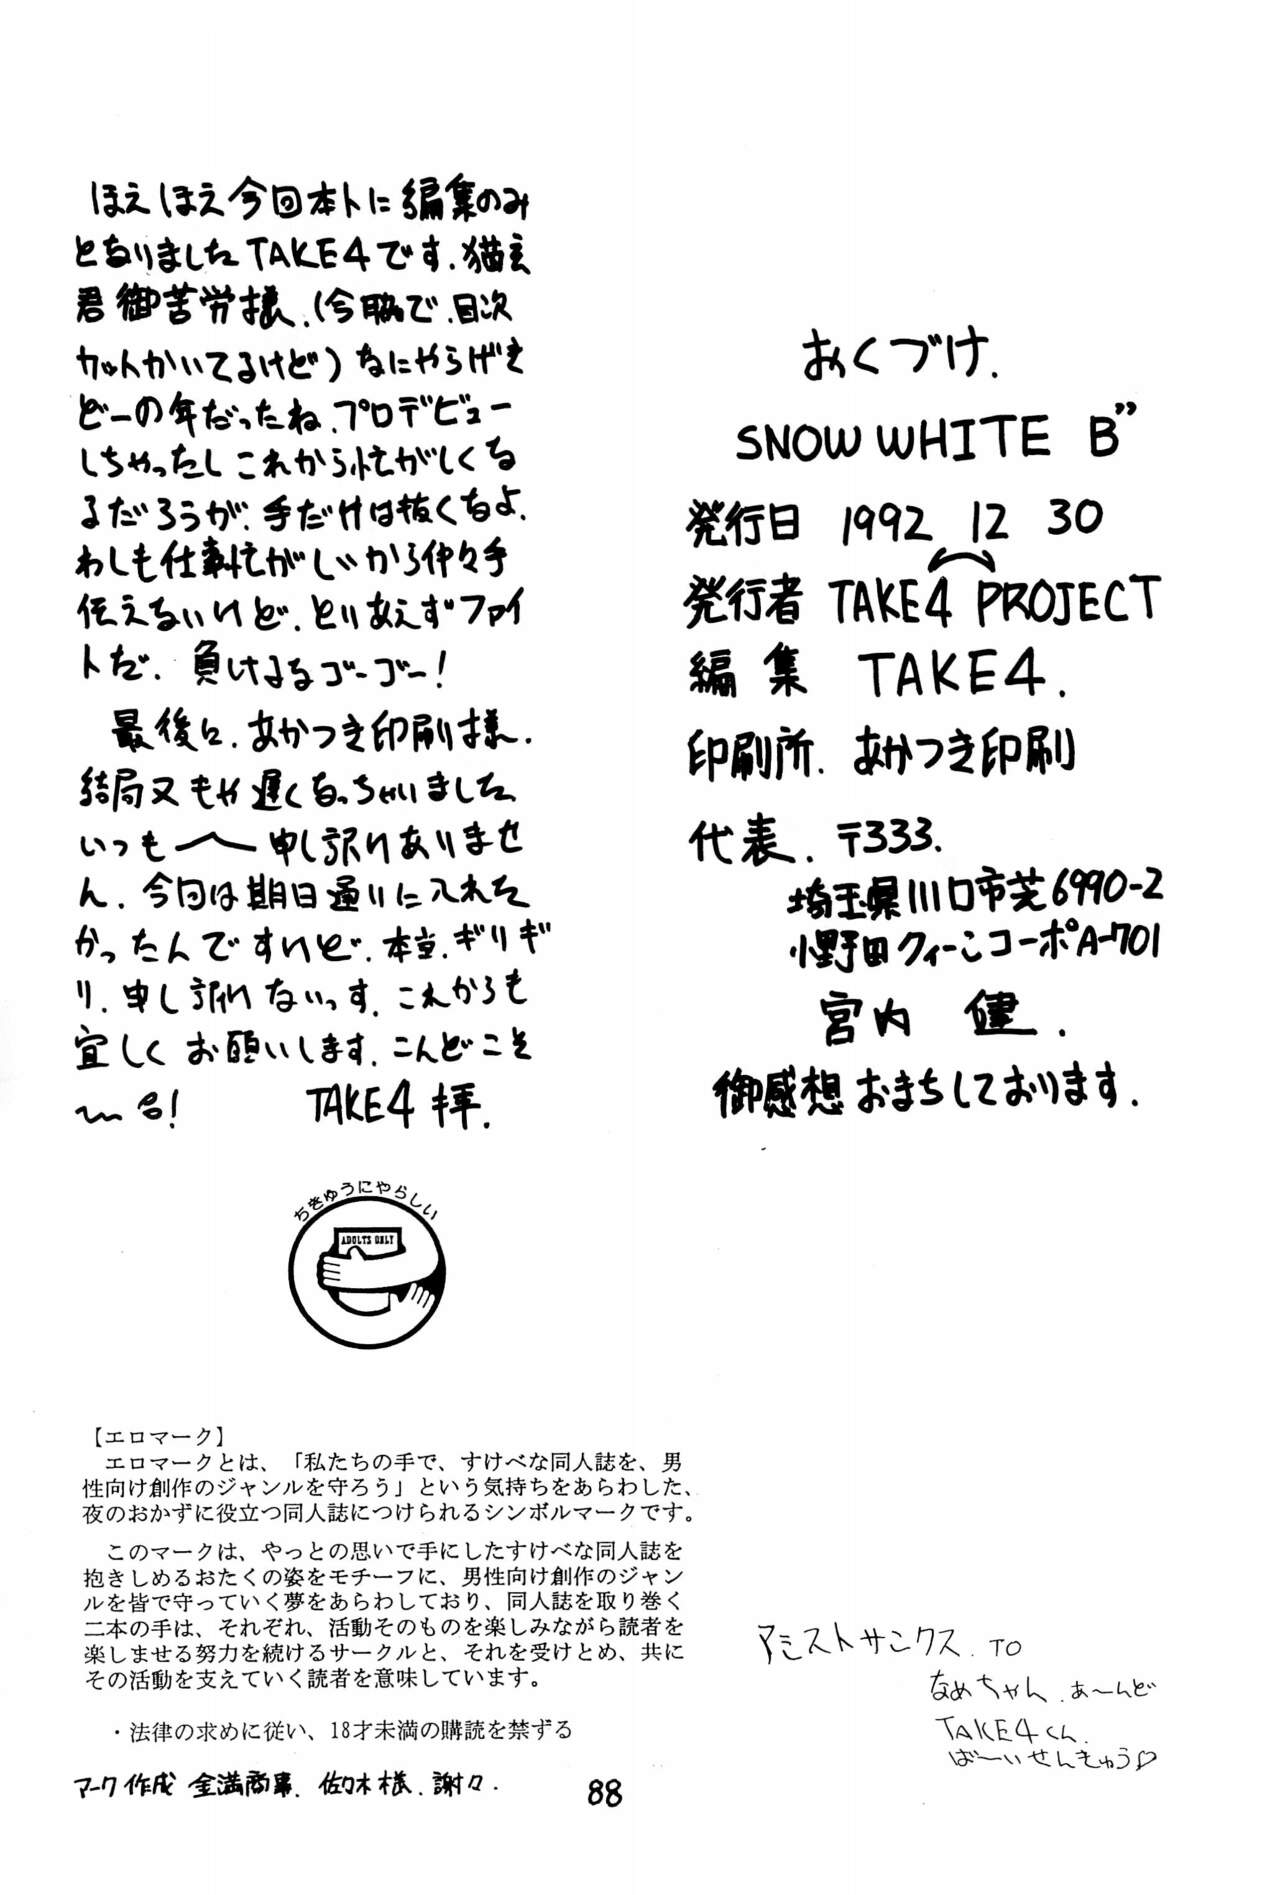 ほえほえ今回本トに編集のみ
となりましたTAKE4です.猫玄
君御苦労様.(今脇で.目次
カットかいてるけど)なにやらげき
どーの年だったね.プロデビュー
しちゃったしこれから忙がしくな
るだろうが.手だけは抜くなよ.
わしも仕事忙がしいから仲々手
伝えないけど.とりあえずファイ
トだ.負けるなゴーゴー!
最後に.あかつき印刷様.
結局又もや遅くなっちゃいました
いつも〜申し訳けありませ
ん.今回は期日通りに入れた
かったんですけど.本当.ギリギ
リ.申し訳けないっす.これからも
宜しくお願いします.こんどこそ
〜る!　TAKE4 拝.
ちきゅうにやらしい
ADULTS ONLY
【エロマーク】
エロマークとは、「私たちの手で、すけべな同人誌を、男
性向け創作のジャンルを守ろう」という気持ちをあらわした、
夜のおかずに役立つ同人誌につけられるシンボルマークです。
このマークは、やっとの思いで手にしたすけべな同人誌を
抱きしめるおたくの姿をモチーフに、男性向け創作のジャン
ルを皆で守っていく夢をあらわしており、同人誌を取り巻く
二本の手は、それぞれ、活動そのものを楽しみながら読者を
楽しませる努力を続けるサークルと、それを受けとめ、共に
その活動を支えていく読者を意味しています。
・法律の求めに従い、18才未満の購読を禁ずる
マーク作成 金満商事.佐々木様.謝々.
おくづけ.
SNOW WHITE B”
発行日 1992 12 30
発行者 TAKE4 PROJECT
編集 TAKE4.
印刷所.あかつき印刷
代表.〒333.
埼玉県川口市芝6990-2
小野田クィーンコーポA-701
宮内 健.
御感想おまちしております.
アシストサンクス.TO
なめちゃん.あ〜んど
TAKE4くん.
ば〜いせんきゅう♡
88